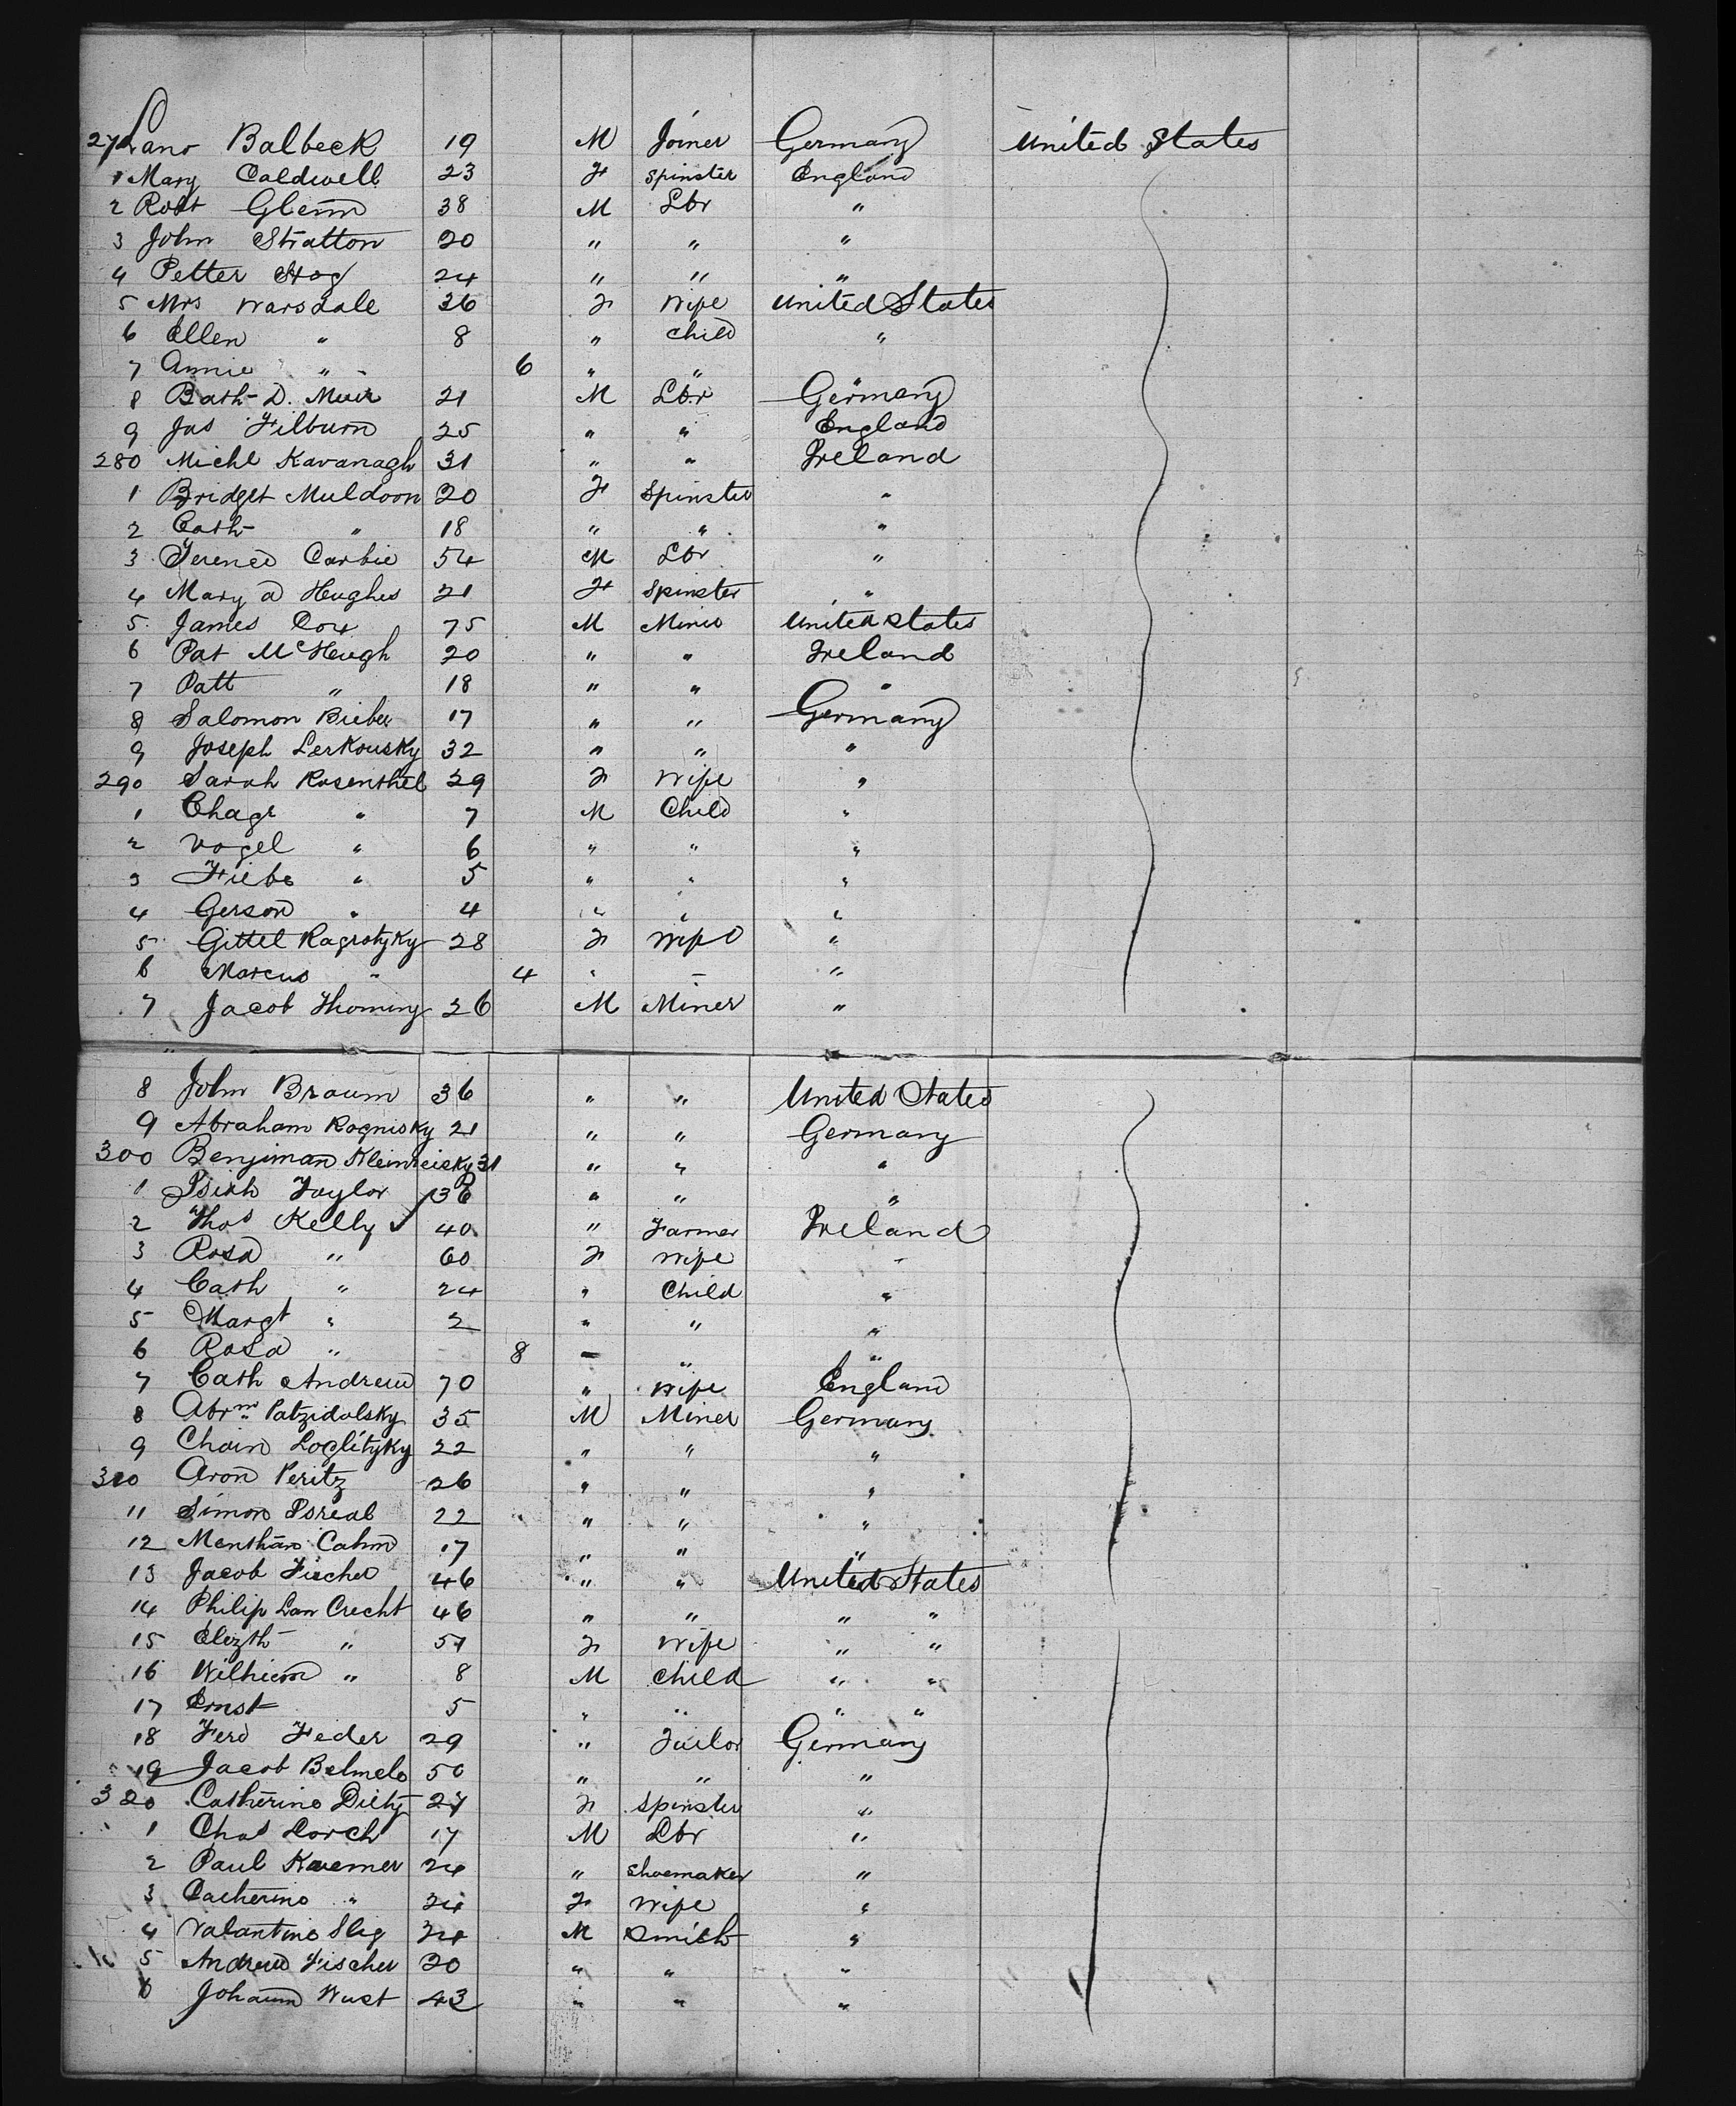 27 Lano Balbeck 19 M Joiner Germany United States
1 Mary Caldwell 23 F Spinster England
2 Robt Glenn 38 M Lbr "
3 John Stratton 20 " " "
4 Petter Hog 24 " " "
5 Mrs Warsdale 36 F Wife United States
6 Ellen " 8 " Child "
7 Annie " 6 " " "
8 Bath D. Muir 21 M Lbr Germany
9 Jas Filburn 25 " " England
280 Michl Kavanagh 31 " " Ireland
1 Bridget Muldoon 20 F Spinster "
2 Cath " 18 " " "
3 Terence Carbie 54 M Lbr "
4 Mary a Hughes 21 F Spinster "
5 James Cox 75 M Miner United States
6 Pat McHeugh 20 " " Ireland
7 Patt " 18 " " "
8 Salomon Bieber 17 " " Germany
9 Joseph Lerkousky 32 " " "
290 Sarah Rosenthel 29 F Wife "
1 Chage " 7 M Child "
2 Vogel " 6 " " "
3 Fiebe " 5 " " "
4 Gerson " 4 " " "
5 Gittel Ragrotzky 28 F Wife "
6 Marcus " 4 " "
7 Jacob Thoming 26 M Miner "
8 John Braum 36 " " United States
9 Abraham Rognisky 21 " " Germany
300 Benjiman Kleinreisky 31 " " "
1 Taylor 36 " " "
2 Thos Kelly 40 " Farmer Ireland
3 Rosa " 60 F Wife "
4 Cath " 24 " Child "
5 Margt " 2 " " "
6 Rosa " 8 " " "
7 Cath Andrew 70 " Wife England
8 Abrm Patzidalsky 35 M Miner Germany
9 Chain Loglitzky 22 " " "
310 Aron Peritz 26 " " "
11 Simon Isreal 22 " " "
12 Menthan Cahn 17 " " "
13 Jacob Fischer 46 " " United States
14 Philip Lan Crecht 46 " " " "
15 Elizth " 51 F Wife " "
16 Wilhiem " 8 M Child " "
17 Ernst 5 " " " "
18 Ferd Feder 29 " Tailor Germany
19 Jacob Belmelo 50 " " "
320 Catherine Dietz 27 F Spinster "
1 Chas Lorch 17 M Lbr "
2 Paul Kraemer 24 " Shoemaker "
3 Catherine " 24 F Wife "
4 Valantine Sleg 34 M Smith "
5 Andrew Fischer 20 " " "
6 Johann Wust 43 " " "